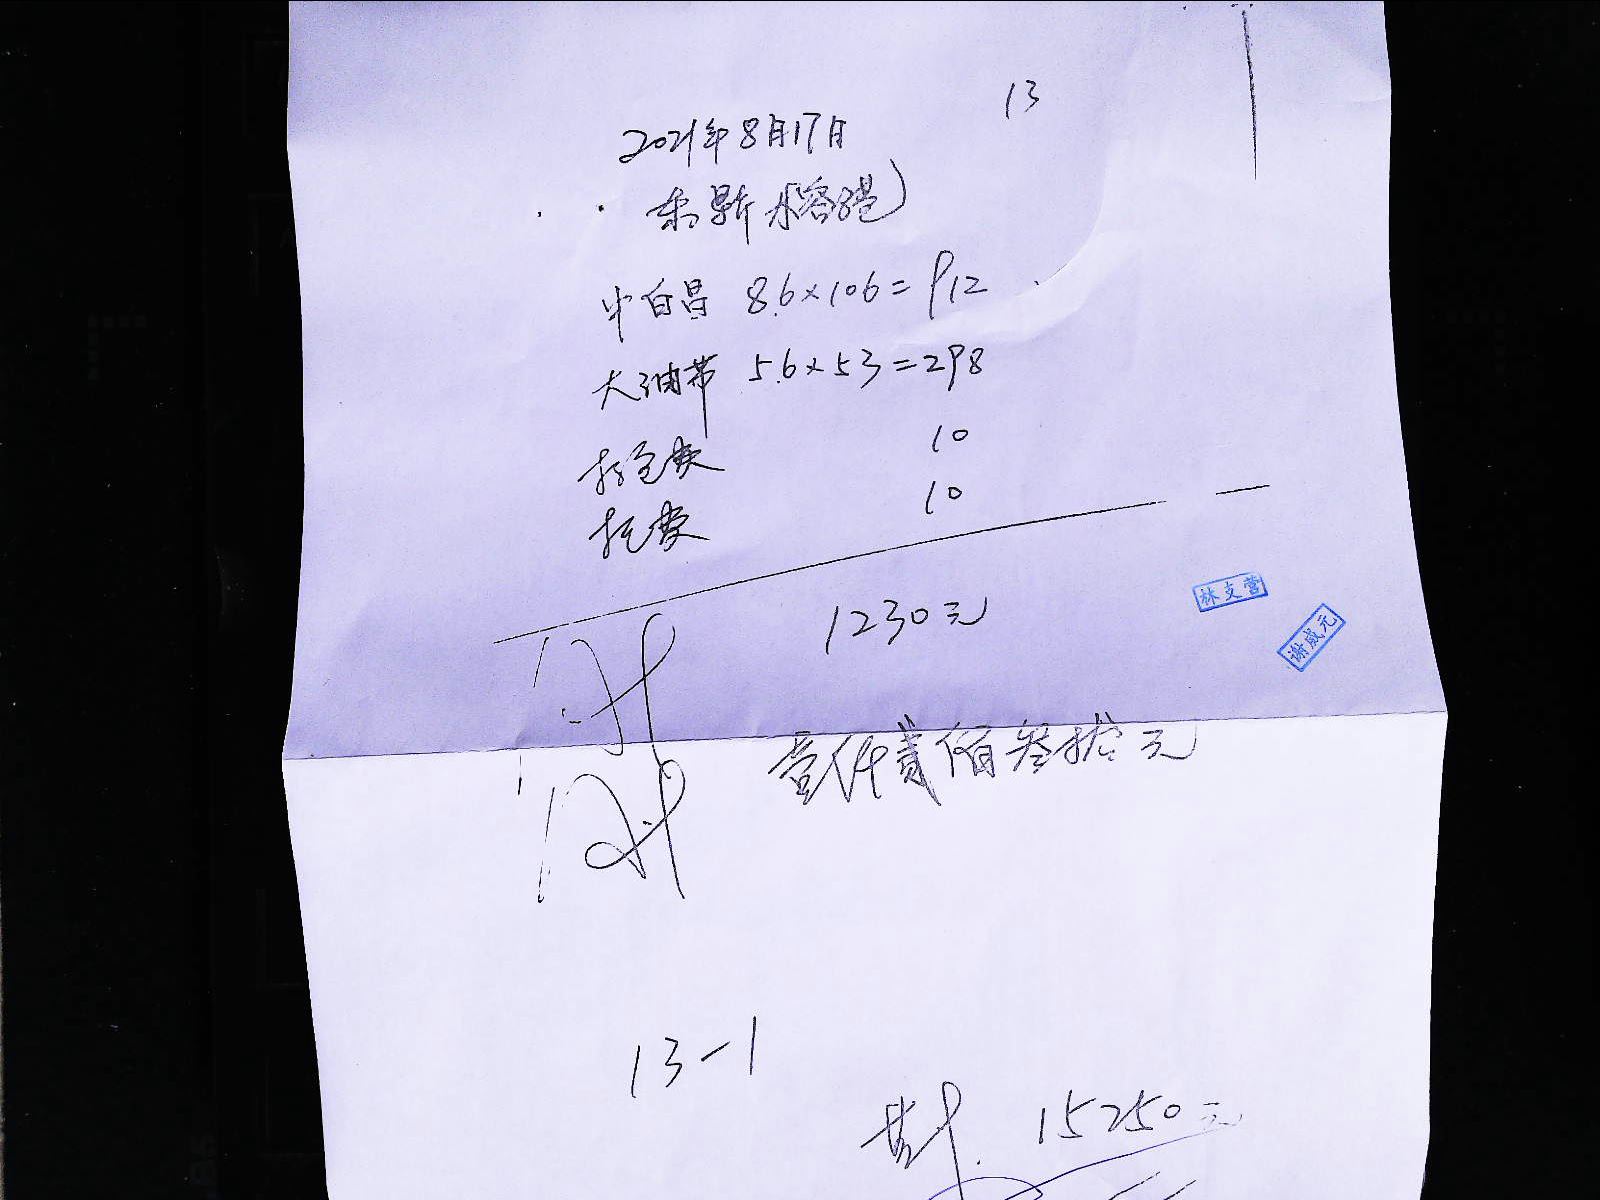 13
2021年8月17日
中白昌 8.6×106=912
大油带 5.6×53=298
打包费 10
托费 10
1230元
林支营
谢咸元
壹仟贰佰叁拾元
13-1
共 15250元